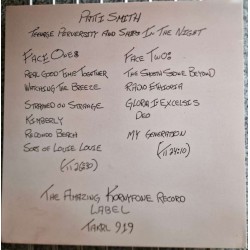 PATTI SMITH
TEENAGE PERVERSITY AND SHIPS IN THE NIGHT
FACE ONE:
REAL GOOD TIME TOGETHER
WATCHING THE BREEZE
STRANDED ON STRANGE
KIMBERLY
REDONDO BEACH
SORT OF LOUIE LOUIE
FACE TWO:
THE SMOOTH STONE BEYOND
RADIO ETHIOPIA
GLORIA IN EXCELSIS
DEO
MY GENERATION
THE AMAZING KORNYFONE RECORD
LABEL
TAKRL 919